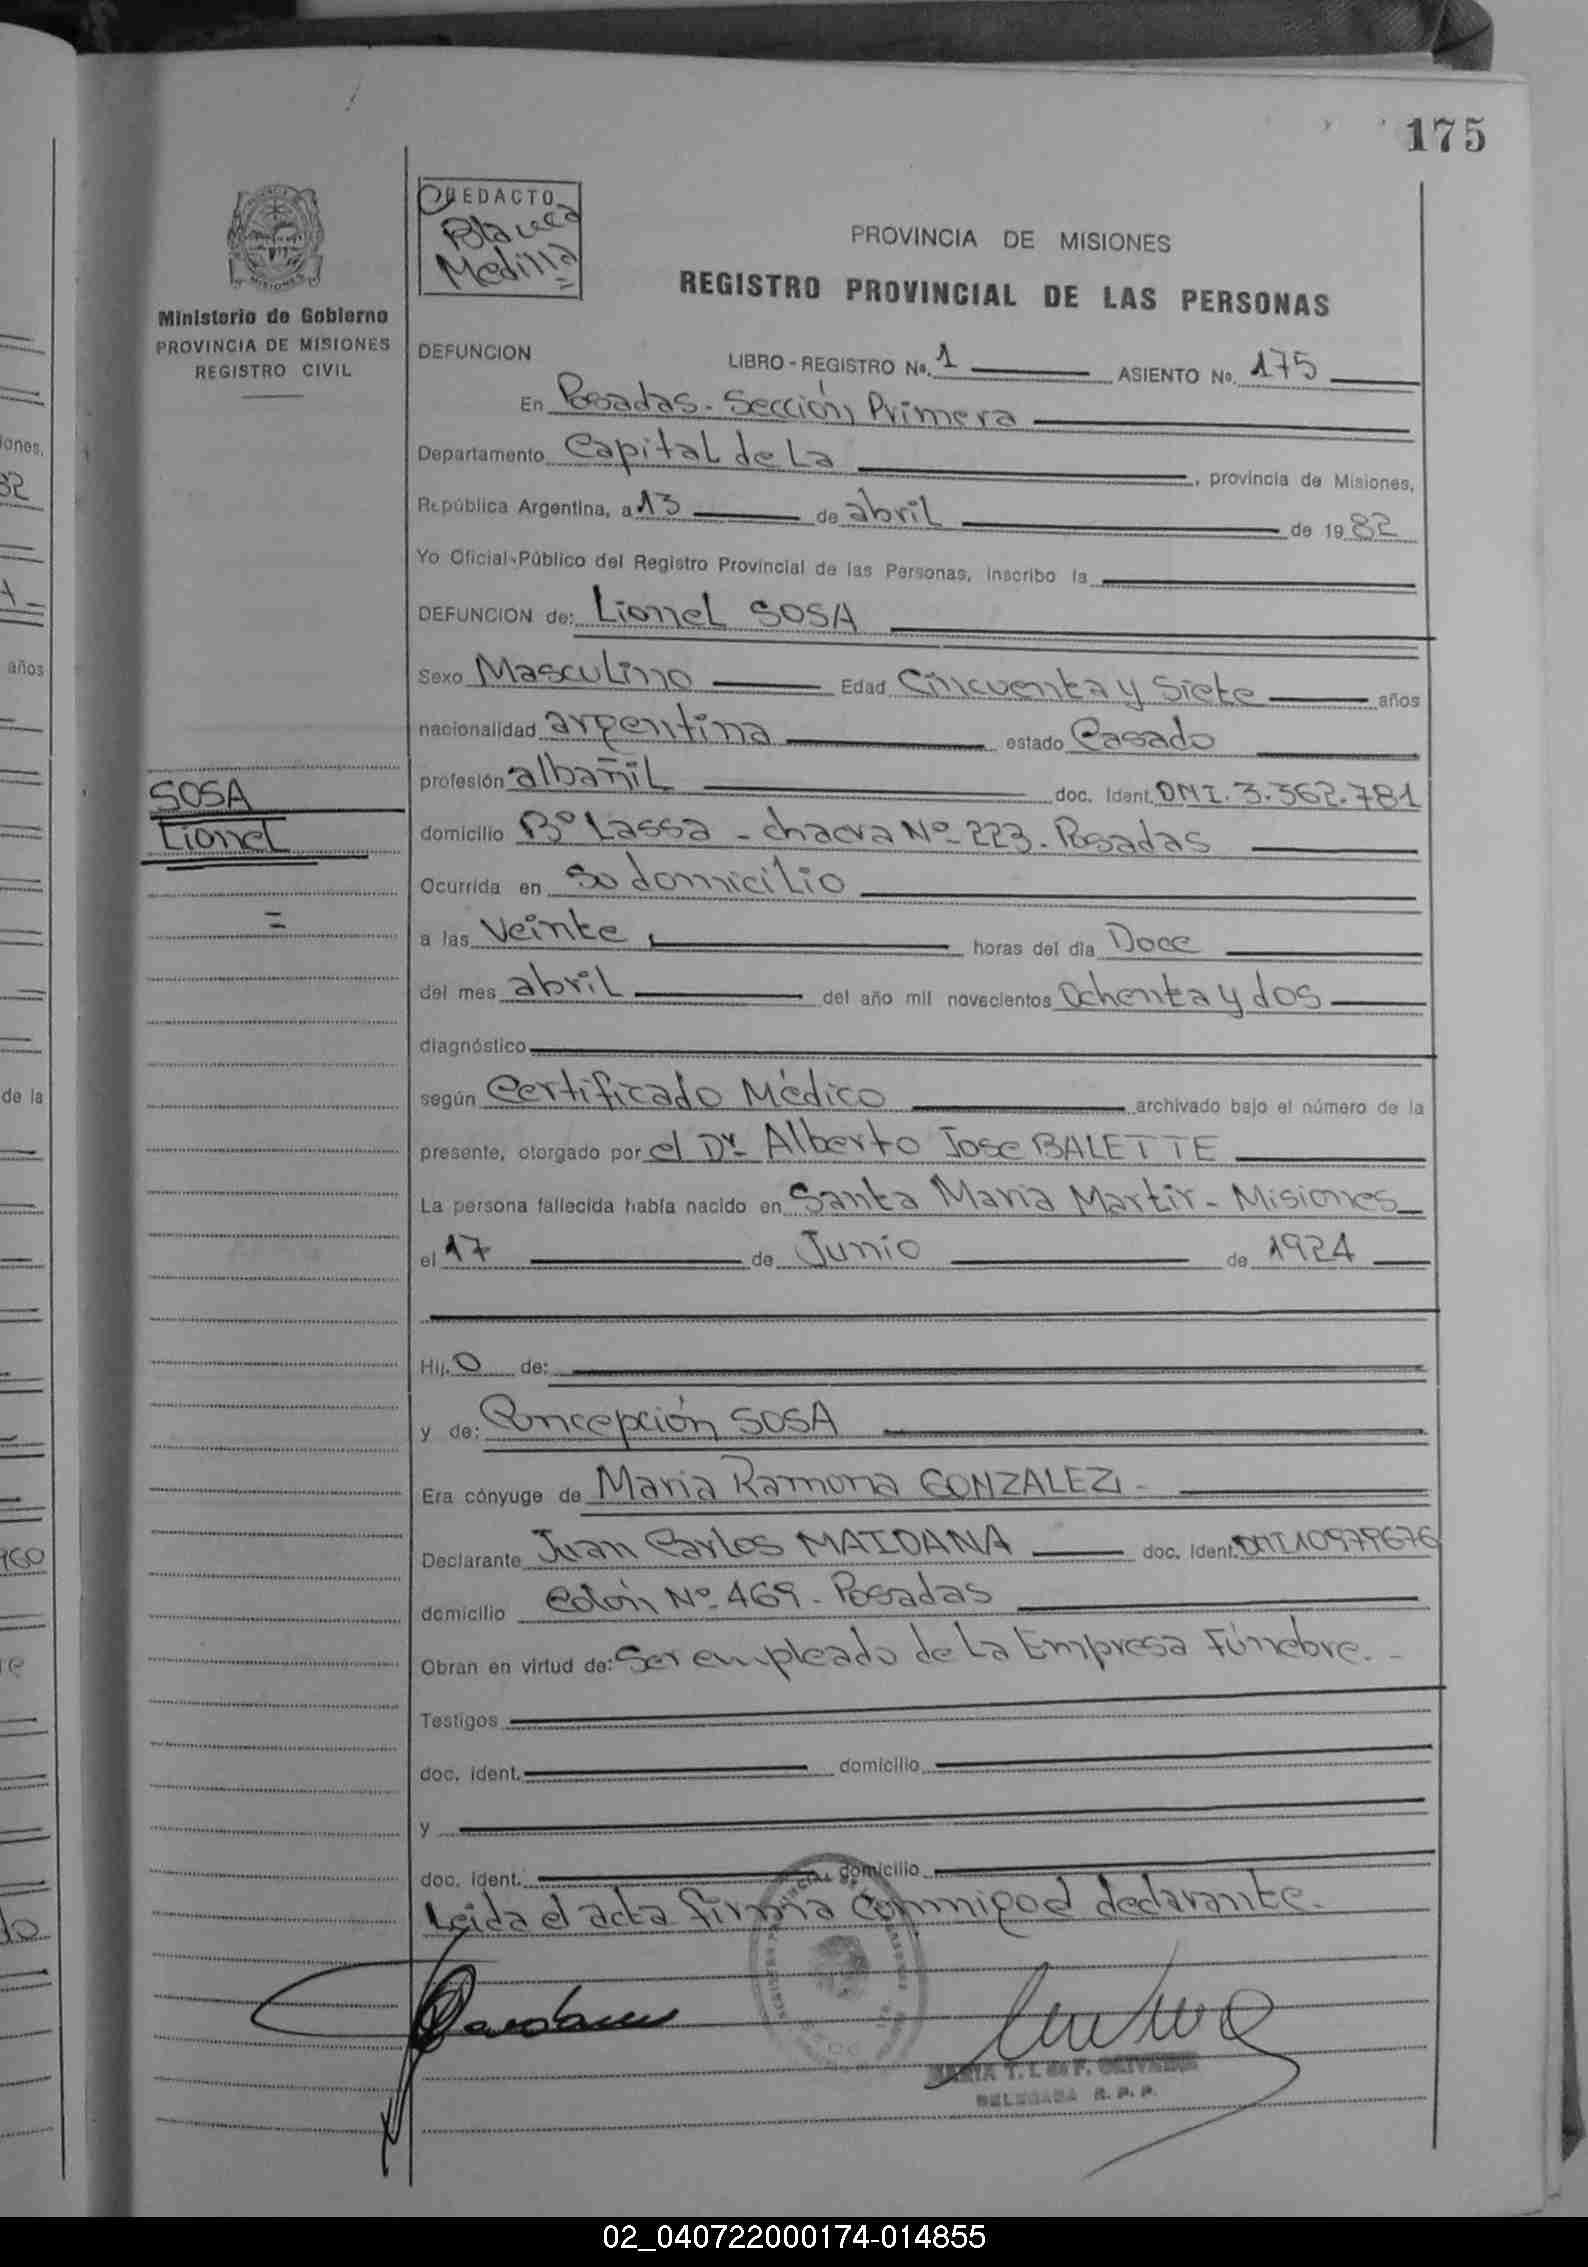 175
REDACTO
Blanca
Medilla
PROVINCIA DE MISIONES
REGISTRO PROVINCIAL DE LAS PERSONAS
Ministerio de Gobierno
PROVINCIA DE MISIONES
REGISTRO CIVIL
DEFUNCION LIBRO - REGISTRO No. 1 ASIENTO No. 175
En Posadas. Sección Primera
Departamento Capital de La, provincia de Misiones,
República Argentina, a 13 de abril de 1982
Yo Oficial-Público del Registro Provincial de las Personas, inscribo la
DEFUNCION de: Lionel SOSA
Sexo Masculino Edad Cincuenta y Siete años
nacionalidad argentina estado Casado
profesión albañil doc. Ident. DNI. 3.362.781
SOSA
Lionel
domicilio Bº Lassa - chacra Nº 223. Posadas
Ocurrida en Su domicilio
a las Veinte, horas del día Doce
del mes abril del año mil novecientos Ochenta y dos
diagnóstico
según Certificado Médico archivado bajo el número de la
presente, otorgado por el Dr. Alberto Jose BALETTE
La persona fallecida había nacido en Santa María Martir - Misiones
el 17 de Junio de 1924
Hij.o de:
y de: Concepción SOSA
Era cónyuge de Maria Ramona GONZALEZ -
Declarante Juan Carlos MAIDANA doc. Ident. DNI 10979676
domicilio Colón Nº 469. Posadas
Obran en virtud de: Ser empleado de La Empresa Fúnebre. -
Testigos
doc. ident. domicilio
y
doc. ident. domicilio
Leida el acta firma conmigo el declarante.
MARIA T. I. de F.
DELEGADA R. P. P.
iones,
82
años
de la
960
02_040722000174-014855